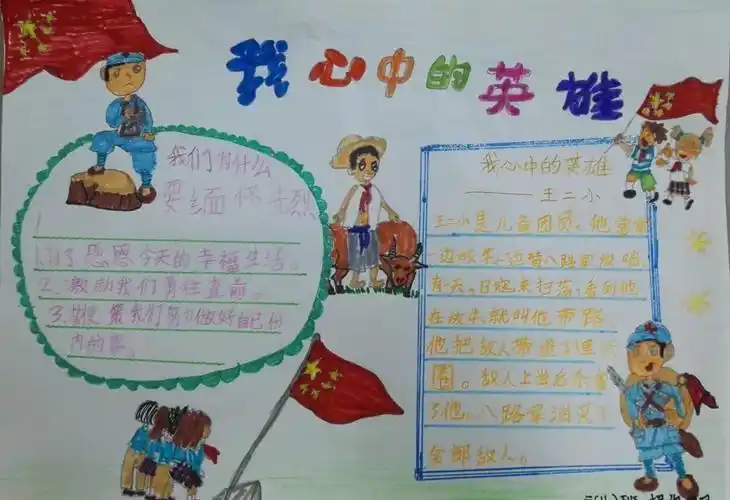 我心中的英雄
我们为什么
要缅怀先烈
1.为了感恩今天的幸福生活。
2.激励我们勇往直前。
3.我们努力做好自己
内的事。
我心中的英雄
——王二小
王二小是儿童团员。他常常
一边放牛一边替八路军放哨
有一天,日寇来扫荡,看到他
在放牛,就叫他带路
他把敌人带进了埋伏
圈。敌人上当后杀害
了他。八路军消灭了
全部敌人。